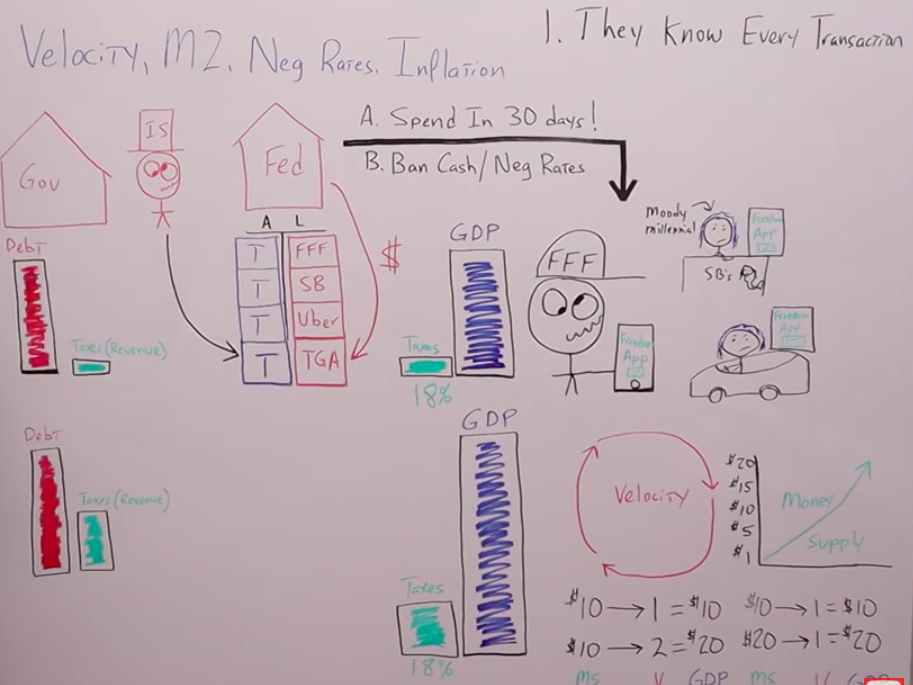 Velocity, M2, Neg Rates, Inflation
1. They Know Every Transaction
Gov
IS
Fed
A. Spend In 30 days!
B. Ban Cash/Neg Rates
A L
T FFF
T SB
T Uber
T TGA
$
Debt
Taxes (Revenue)
GDP
Taxes
18%
FFF
Freedom
App
Moody
millennial
Freedom
App
SB's
Freedom
App
Debt
Taxes (Revenue)
GDP
Taxes
18%
Velocity
$20
$15
$10
$5
$1
Money
Supply
$10 → 1 = $10 $10 → 1 = $10
$10 → 2 = $20 $20 → 1 = $20
MS V GDP MS V GDP